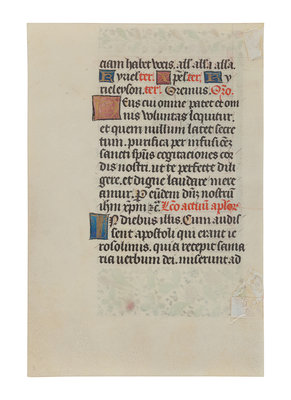 tiam habet vocis. all͞a all͞a all͞a.
Kyriel'ter. Xpel'ter. Ky
rieleyson.ter. Oremus. Oro.
Deus cui omne patet et om
nis voluntas loquitur,
et quem nullum latet secre
tum, purifica per infusionē
sancti spūs cogitationes cor
dis nostri, ut te perfecte dili
gere, et digne laudare mere
amur. P eūdem dūz nostrū
ihm xpm zc. Lc̄o actuū aplor
In diebus illis. Cum audis
sent apostoli qui erant ie
rosolimis, quia recepit sama
ria verbum dei, miserunt ad